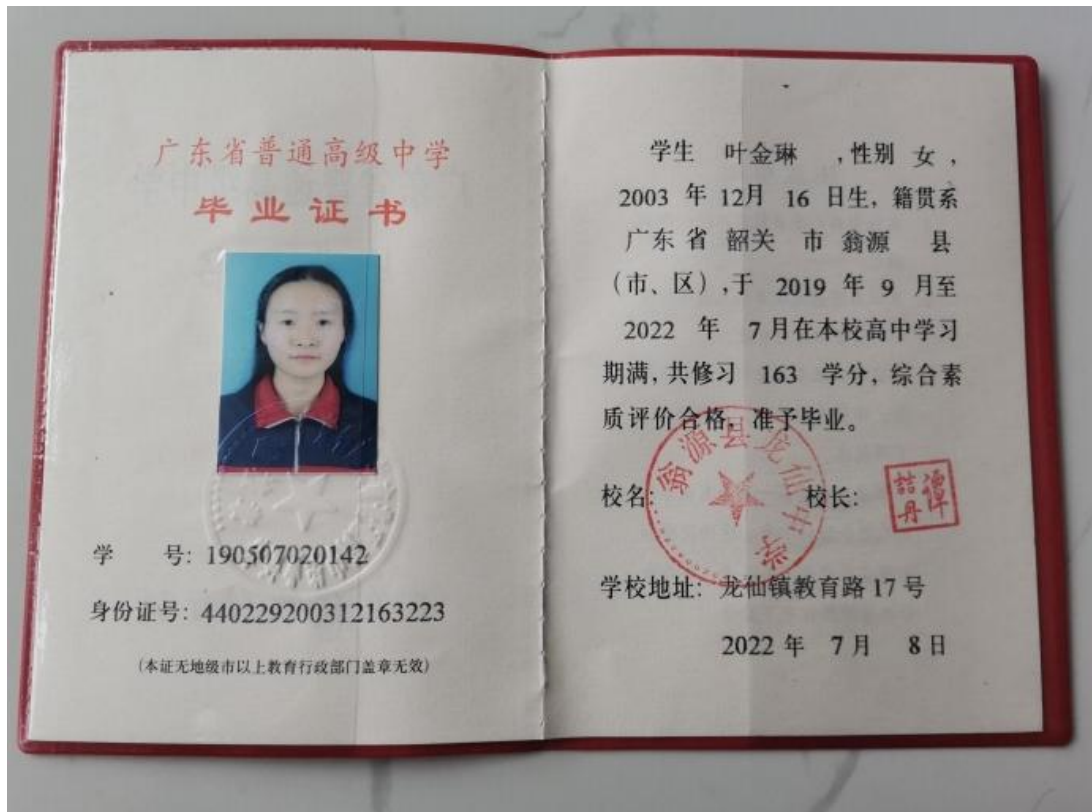 广东省普通高级中学
毕业证书
学 号: 190507020142
身份证号: 440229200312163223
(本证无地级市以上教育行政部门盖章无效)
学生 叶金琳 ,性别 女,
2003 年 12月 16 日生, 籍贯系
广东 省 韶关 市 翁源 县
(市、区) ,于 2019 年 9 月至
2022 年 7 月在本校高中学习
期满, 共修习 163 学分, 综合素
质评价合格, 准予毕业。
校名: 校长:
翁源县龙仙中学
谭喆丹
学校地址: 龙仙镇教育路 17 号
2022 年 7 月 8 日